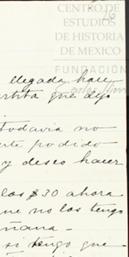 CENTRO DE
ESTUDIOS
DE HISTORIA
DE MEXICO
FUNDACIÓN
llegada hace
que dejo
todavia no
podido
y deseo hacer
los $30 ahora
no los tengo
mañana -
si tengo que